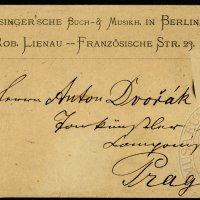 singer'sche Buch- & Musikh. in Berlin
Rob. Lienau -- Französische Str. 23.
Herrn Anton Dvořák
Tonkünstler
Componi
Prag